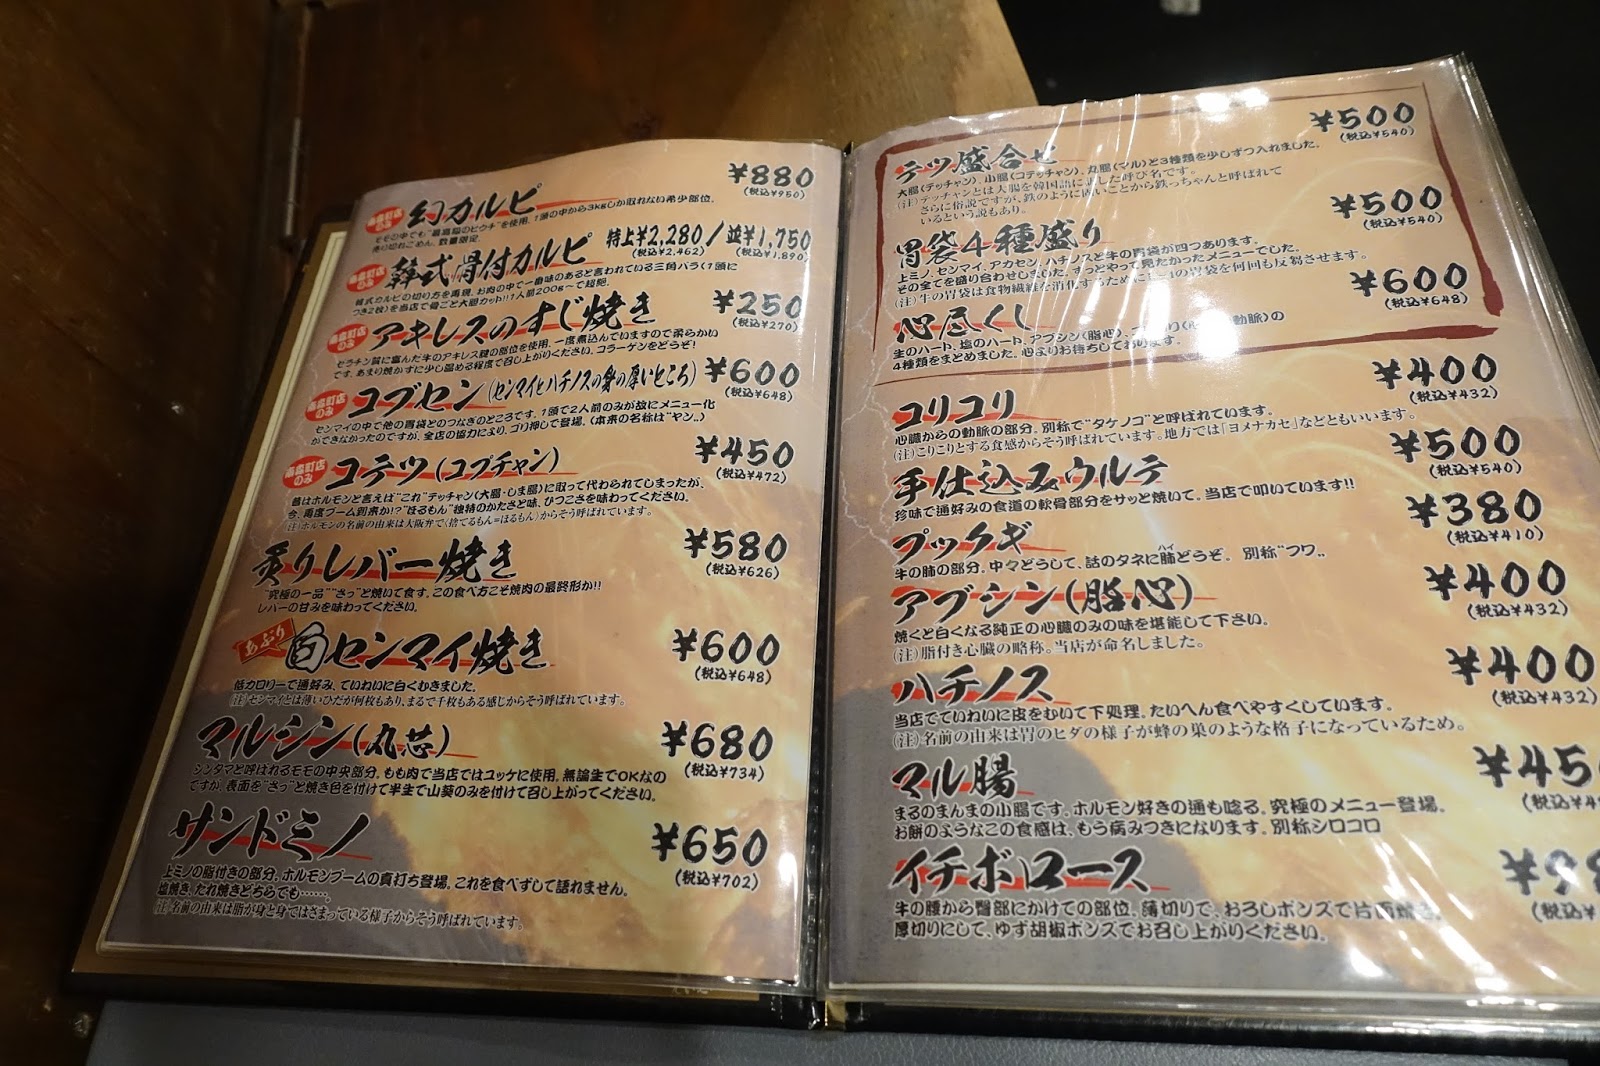 幻カルビ ¥880
(税込¥950)
南森町店のみ
モモの中でも"最高級のヒウチ"を使用。1頭の中から3kgしか取れない希少部位。
売り切れごめん。数量限定。
韓式骨付カルビ 特上¥2,280/並¥1,750
(税込¥2,462) (税込¥1,890)
南森町店のみ
韓式カルビの切り方を再現。お肉の中で一番味のあると言われている三角バラ(1頭に
つき2枚)を当店で骨ごと大胆カット!!1人前200g〜で超絶。
アキレスのすじ焼き ¥250
(税込¥270)
南森町店のみ
ゼラチン質に富んだ牛のアキレス腱の部位を使用。一度煮込んでいますので柔らかい
です。あまり焼かずに少し温める程度で召し上がりください。コラーゲンをどうぞ!
コブセン(センマイとハチノスの身の厚いところ) ¥600
(税込¥648)
南森町店のみ
センマイの中で他の胃袋とのつなぎのところです。1頭で2人前のみが故にメニュー化
ができなかったのですが、全店の協力により、ゴリ押しで登場。(本来の名称は"ヤン"。)
コテツ(コプチャン) ¥450
(税込¥472)
南森町店のみ
昔はホルモンと言えば"これ"テッチャン(大腸・しま腸)に取って代わられてしまったが、
今、再度ブーム到来か!?"ほるもん"独特のかたさと味、ひつこさを味わってください。
(注)ホルモンの名前の由来は大阪弁で(捨てるもん=ほるもん)からそう呼ばれています。
炙りレバー焼き ¥580
(税込¥626)
"究極の一品""さっ"と焼いて食す。この食べ方こそ焼肉の最終形か!!
レバーの甘みを味わってください。
あぶり 白センマイ焼き ¥600
(税込¥648)
低カロリーで通好み、ていねいに白くむきました。
(注)センマイとは薄いひだが何枚もあり、まるで千枚もある感じからそう呼ばれています。
マルシン(丸芯) ¥680
(税込¥734)
シンタマと呼ばれるモモの中央部分。もも肉で当店ではユッケに使用。無論生でOKなの
ですが、表面を"さっ"と焼き色を付けて半生で山葵のみを付けて召し上がってください。
サンドミノ ¥650
(税込¥702)
上ミノの脂付きの部分。ホルモンブームの真打ち登場。これを食べずして語れません。
塩焼き、たれ焼きどちらでも……。
(注)名前の由来は脂が身と身ではさまっている様子からそう呼ばれています。
テツ盛合せ ¥500
(税込¥540)
大腸(テッチャン)、小腸(コテッチャン)、丸腸(マル)と3種類を少しずつ入れました。
(注)テッチャンとは大腸を韓国語に訳した呼び名です。
さらに俗説ですが、鉄のように固いことから鉄っちゃんと呼ばれて
いるという説もあり。
胃袋4種盛り ¥500
(税込¥540)
上ミノ、センマイ、アカセン、ハチノスと牛の胃袋が四つあります。
その全てを盛り合わせしました。ずっとやって見たかったメニューでした。
(注)牛の胃袋は食物繊維を消化するために1〜4の胃袋を何回も反芻させます。
心尽くし ¥600
(税込¥648)
生のハート、塩のハート、アブシン(脂心)、 動脈)の
4種類をまとめました。心よりお待ちしております。
コリコリ ¥400
(税込¥432)
心臓からの動脈の部分。別称で"タケノコ"と呼ばれています。
(注)こりこりとする食感からそう呼ばれています。地方では「ヨメナカセ」などともいいます。
手仕込みウルテ ¥500
(税込¥540)
珍味で通好みの食道の軟骨部分をサッと焼いて。当店で叩いています!!
プップギ ¥380
(税込¥410)
牛の肺の部分。中々どうして、話のタネに肺どうぞ。 別称"フワ"。
ハイ
アブシン(脂心) ¥400
(税込¥432)
焼くと白くなる純正の心臓のみの味を堪能して下さい。
(注)脂付き心臓の略称。当店が命名しました。
ハチノス ¥400
(税込¥432)
当店でていねいに皮をむいて下処理。たいへん食べやすくしています。
(注)名前の由来は胃のヒダの様子が蜂の巣のような格子になっているため。
マル腸 ¥45
(税込¥4
まるのまんまの小腸です。ホルモン好きの通も唸る。究極のメニュー登場。
お餅のようなこの食感は、もう病みつきになります。別称シロコロ
イチボロース
(税込¥
牛の腰から臀部にかけての部位。薄切りで、おろしポンズで片面焼き。
厚切りにして、ゆず胡椒ポンズでお召し上がりください。